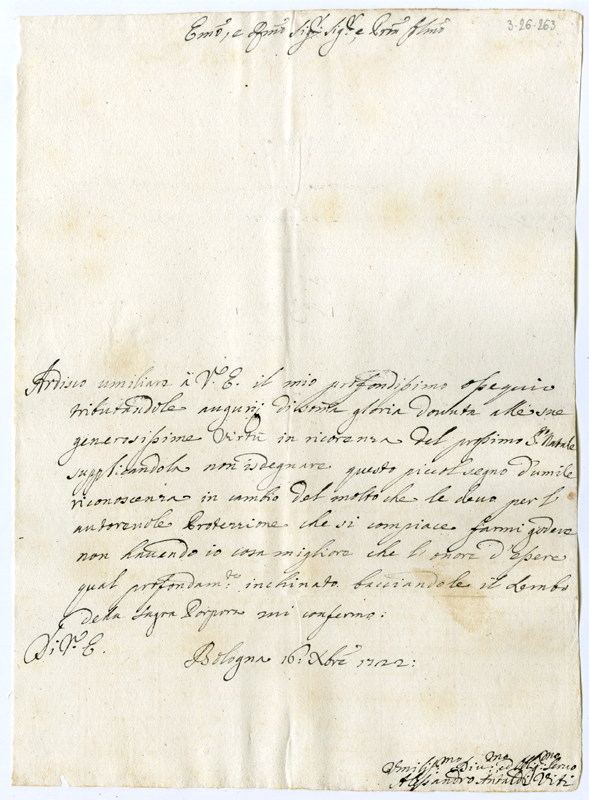 3-26-263
Emo, e Rmo Sigr. Sigr. e Prōn Colmo
Ardisco umiliare à V. E. il mio profondissimo ossequio
tributandole augurij di somma gloria dovuta alle sue
generosissime Virtù in ricorenza del prossimo Sto Natale
supplicandola non isdegnare questo piccol segno d'umile
riconoscenza in cambio del molto che le devo per l'
autorevole Protezzione che si compiace farmi godere
non havendo io cosa migliore che l'onore d'essere
qual profondamte inchinato bacciandole il Lembo
della Sagra Porpora mi confermo:
Di V. E.
Bologna 16: Xbre 1722:
Umilissmo Divmo ed Obligmo Servo
Alessandro Antaldi Viti